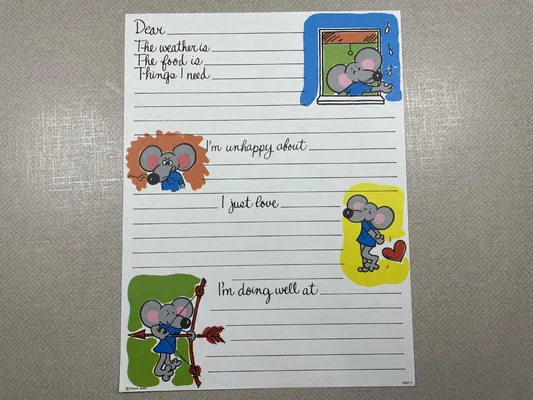 Dear
The weather is
The food is
Things I need
I'm unhappy about
I just love
I'm doing well at